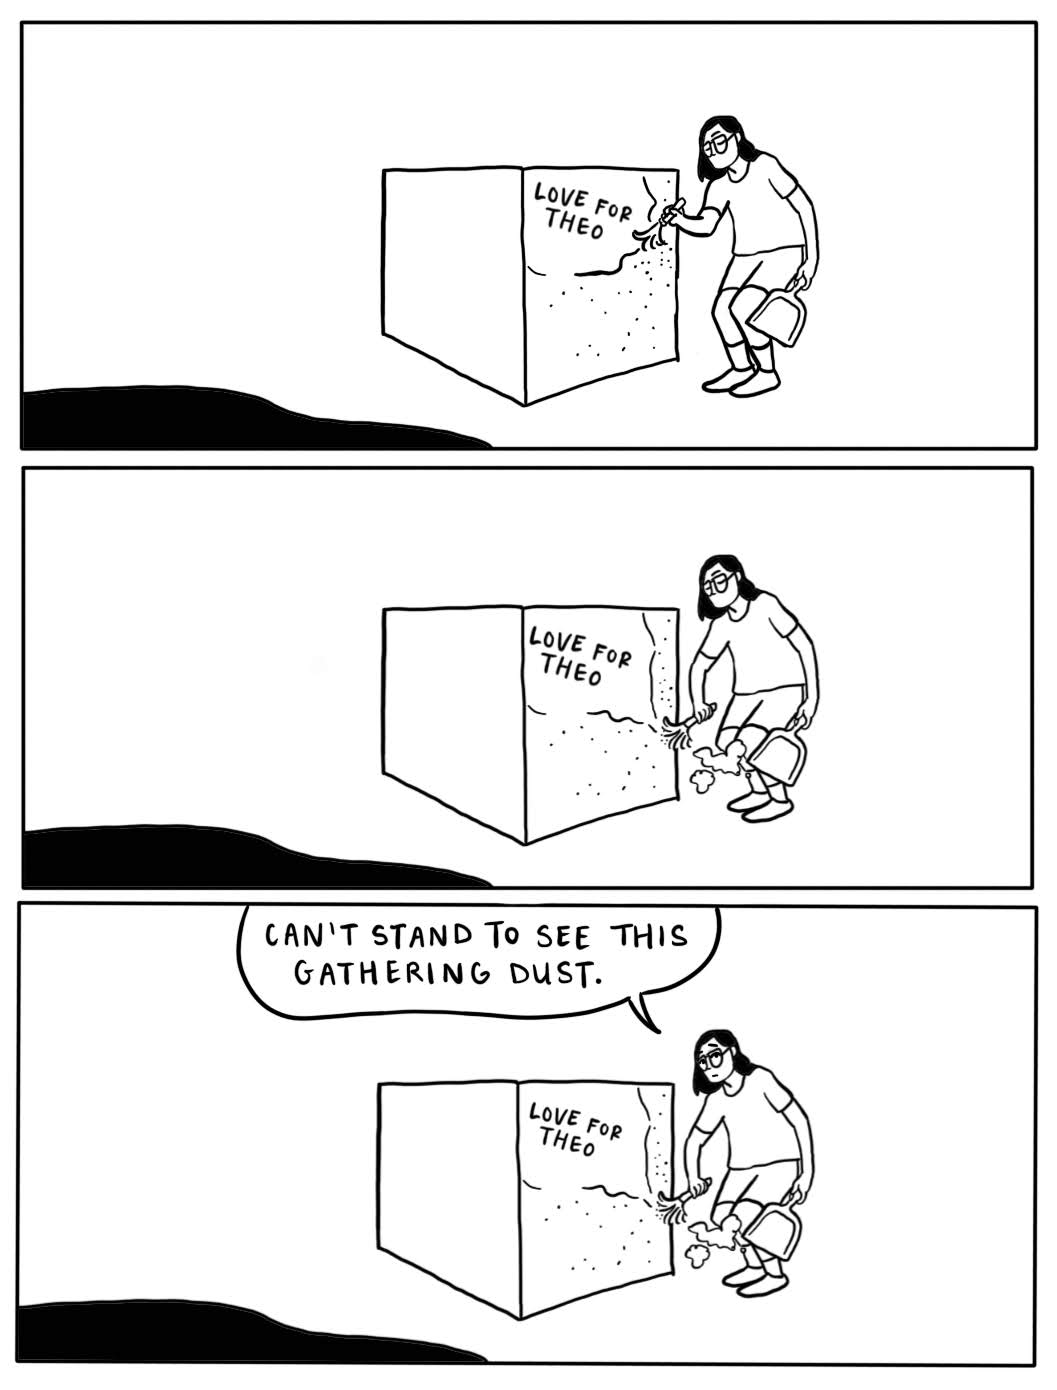 LOVE FOR
THEO
LOVE FOR
THEO
CAN'T STAND TO SEE THIS
GATHERING DUST.
LOVE FOR
THEO